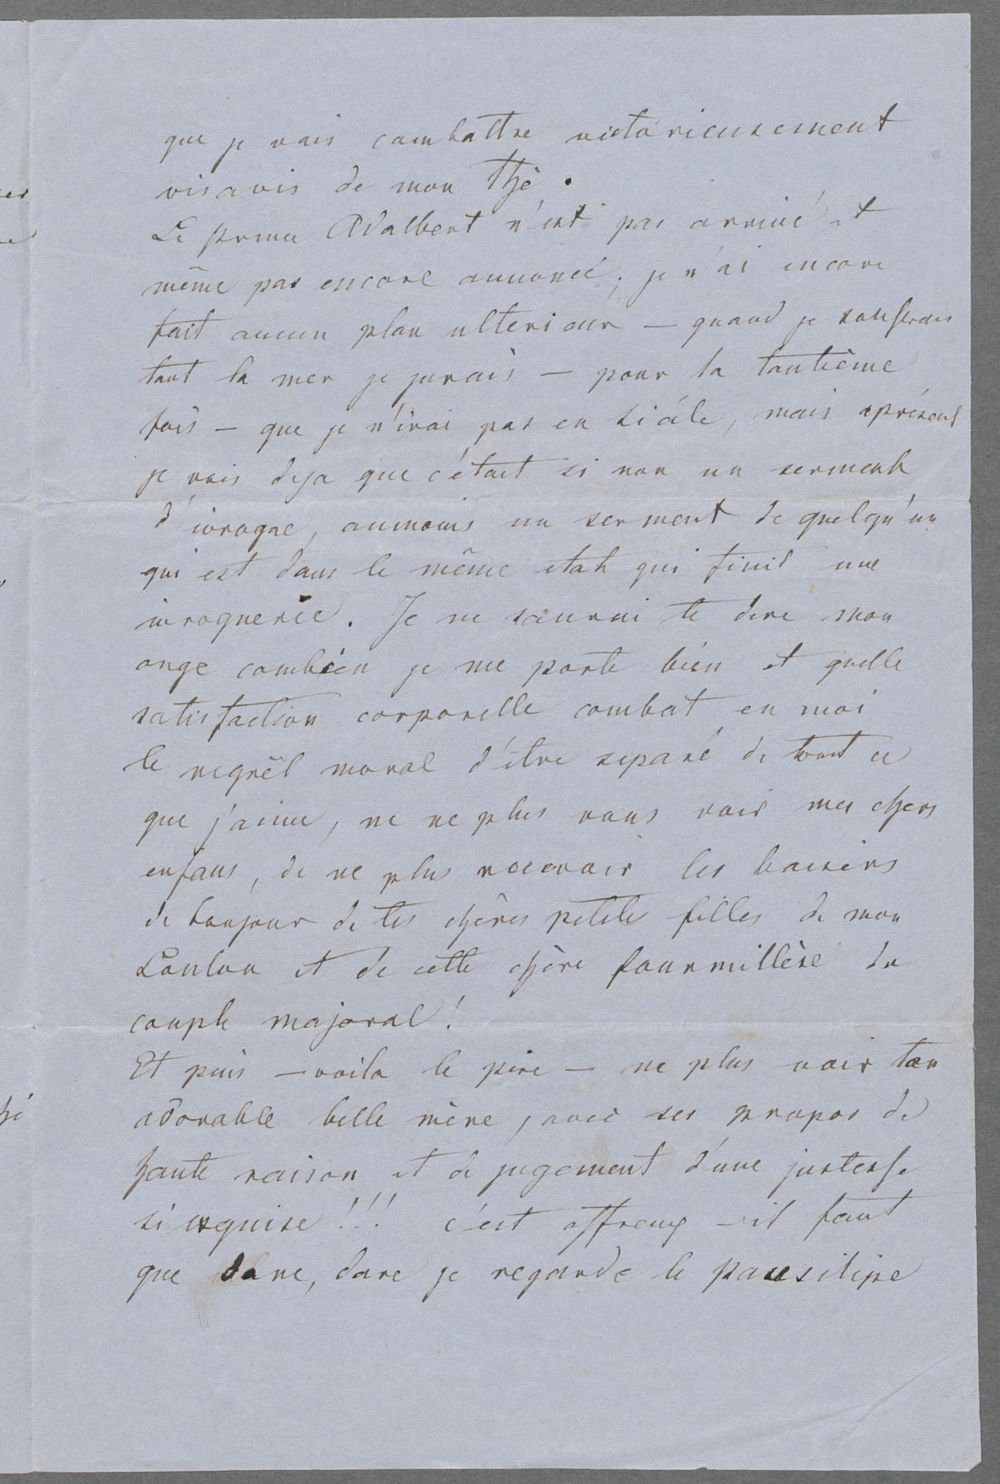 que je vais combattre victorieusement
visavis de mon thé.
Le prince Adalbert n'est pas arrivé et
même pas encore annoncé; je n'ai encore
fait aucun plan ulterieur — quand je souffrais
tant la mer je jurais — pour la tantième
fois — que je n'irai pas en Sicile, mais aprésent
je vois deja que c'était si non un serment
d'ivrogne, aumoins un serment de quelqu'un
qui est dans le même etat qui finit une
ivrognerie. Je ne saurai te dire mon
ange combien je me porte bien et quelle
satisfaction corporelle combat en moi
le regrêt moral d'être separé de tout ce
que j'aime, ne ne plus vous voir mes chers
enfans, de ne plus recevoir les baisers
de bonjour de tes chères petite filles de mon
Loulou et de cette chère fourmillère du
couple majoral!
Et puis — voila le pire — ne plus voir ton
adorable belle mère, avec ses propos de
haute raison et de jugement d'une justesse
si exquise!!! c'est affreux — il faut
que dare, dare je regarde le pausilipe
er
hé